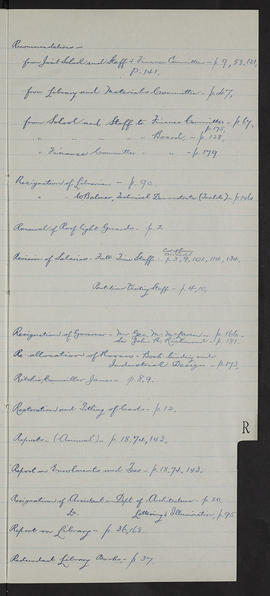 Recommendations —
from Joint School and Staff & Finance Committee - p. 9, 53, 121,
p. 141,
from Library and Materials Committee - p. 47,
from School and Staff to Finance Committee - p. 67,
p. 175,
" " " Board. - p. 128,
" Finance Committee " " - p. 179
Resignation of Librarian - p. 90.
" W Balmer, Technical Demonstrator (Textile). - p. 146.
Renewal of Roof light Guards - p. 2
Revision of Salaries - Full Time Staff - p. 3, 9, 101, 114, 134,
Part time Visiting Staff - p. 4, 10,
Resignation of Governor - Mr Geo. M. - p. 166.
Sir John R. Richmond - p. 191.
Re-allocation of Rooms - Book-binding and
Industrial Design - p. 173
Ritchie, Councillor James - p. 8, 9.
Restoration and Tithing of Casts - p. 12.
Reports - (Annual) - p. 18, 74, 142,
Report on Enrolments and Fees - p. 18, 74, 142,
Resignation of Assistant - Dept of Architecture - p. 20.
Do. Lettering & Illumination, p. 95
Report on Library - p. 26, 168.
Redundant Library Books - p. 37.
R